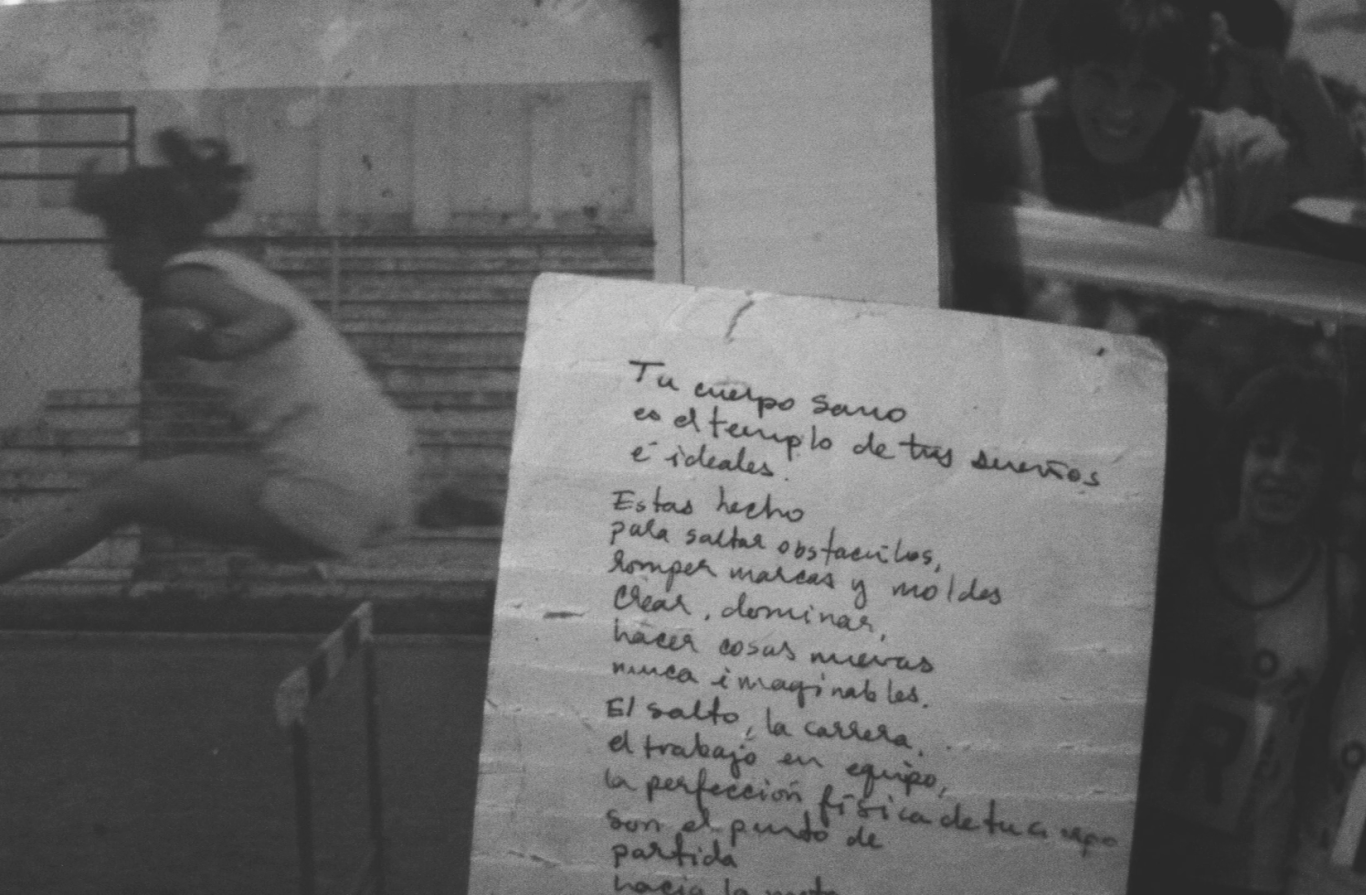 Tu cuerpo sano
es el templo de tus sueños
é ideales.
Estas hecho
para saltar obstaculos,
romper marcas y moldes
crear, dominar,
hacer cosas nuevas
nunca imaginables.
El salto, la carrera,
el trabajo en equipo,
la perfección física de tu cuerpo
son el punto de
partida
hacia la meta
R